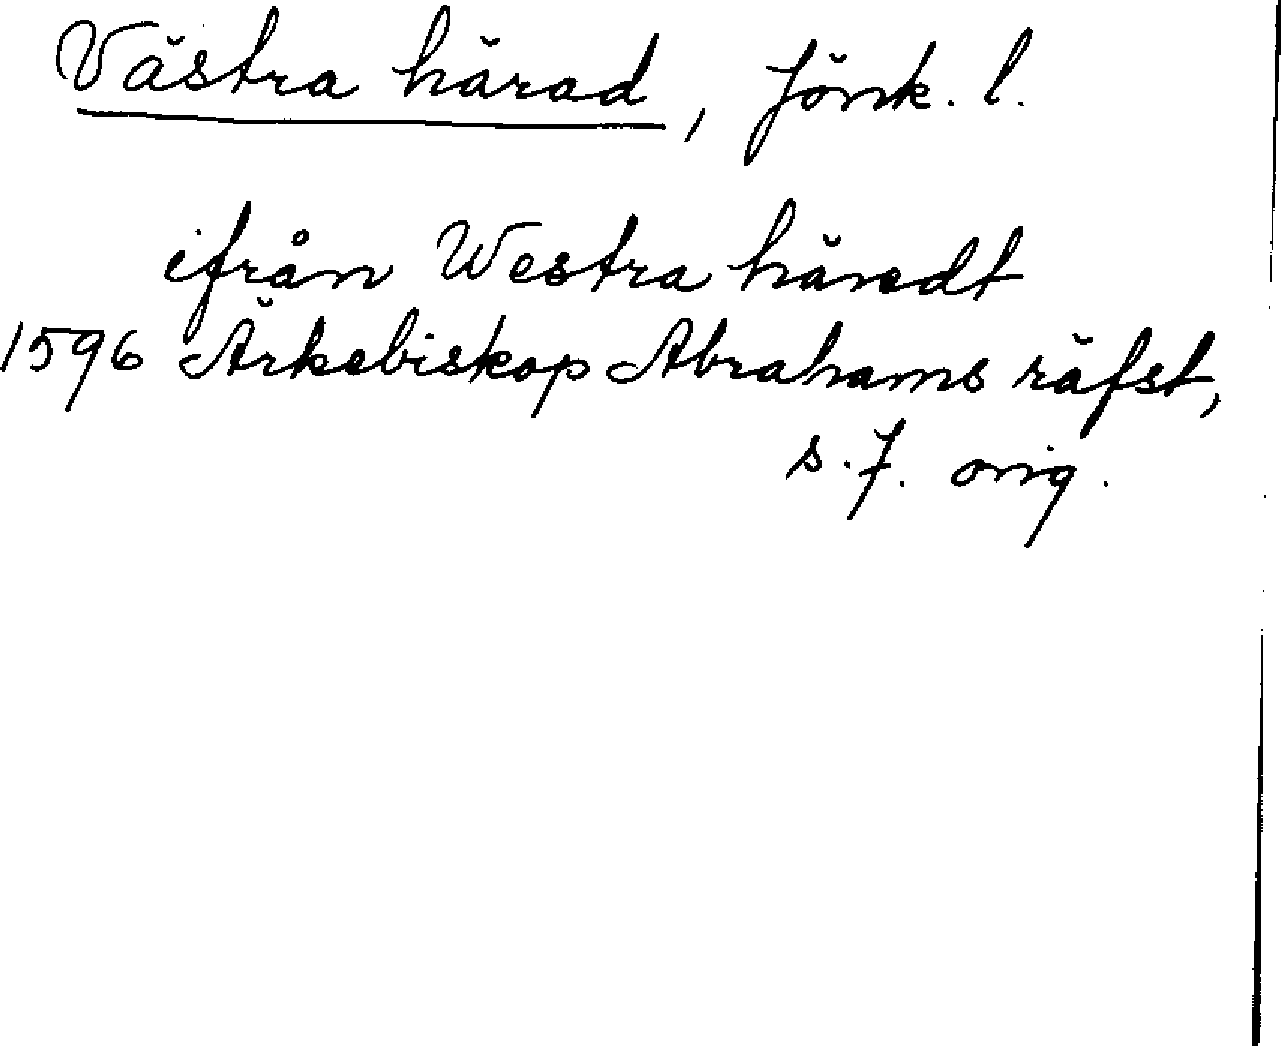 Västra härad, Jönk. l.
ifrån Westra häredt
1596 Ärkebiskop Abrahams räfst,
s. 7. orig.